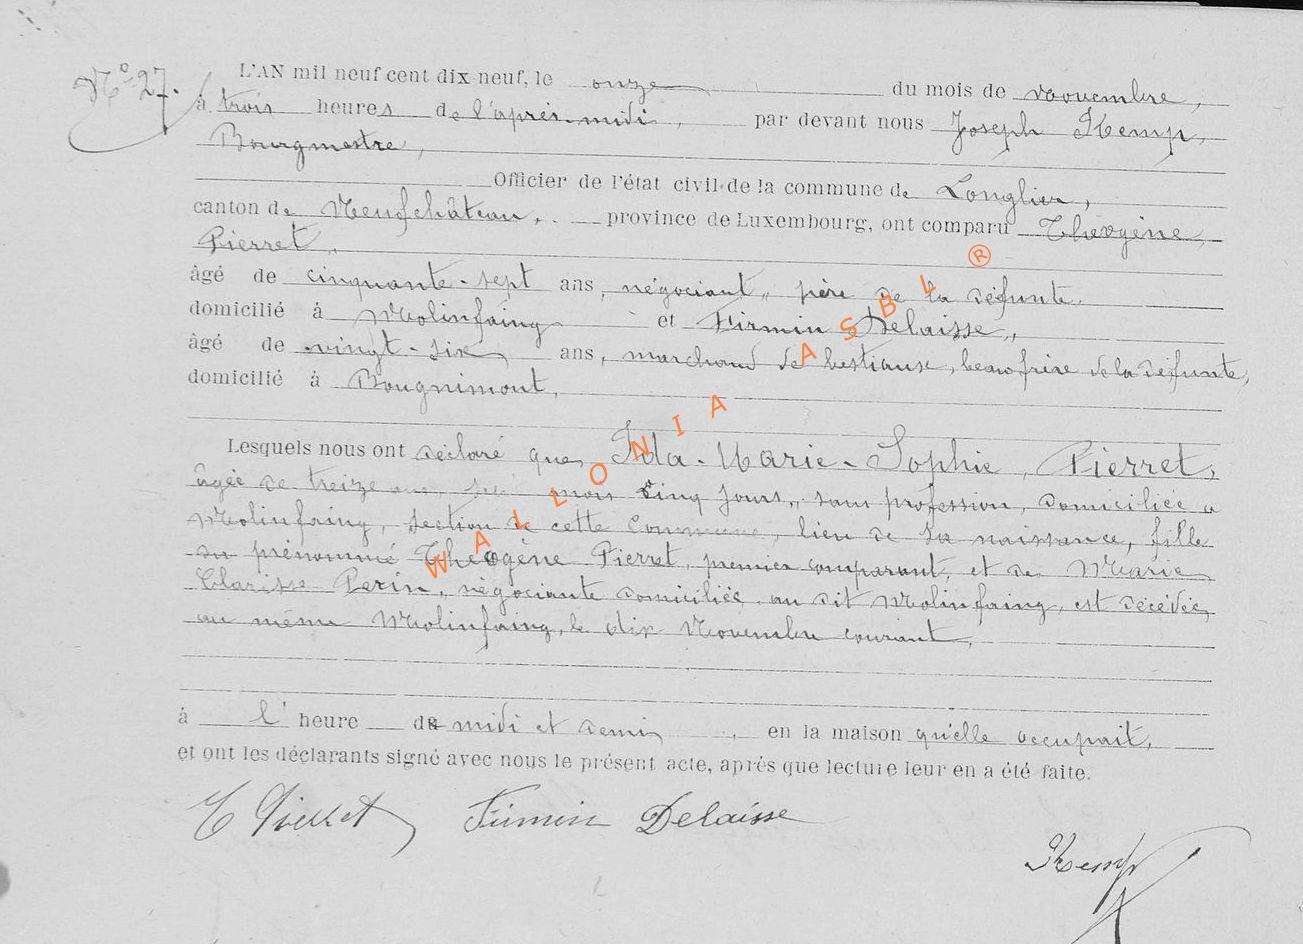 N° 27.
L'AN mil neuf cent dix neuf, le onze du mois de novembre,
à trois heures de l'après-midi, par devant nous Joseph Kemp,
Bourgmestre,
Officier de l'état civil de la commune de Longlier,
canton de Neufchâteau, province de Luxembourg, ont comparu Théogène
Pierret,
âgé de cinquante-sept ans, négociant, père de la défunte,
domicilié à Molinfaing et Firmin Delaisse,
âgé de vingt-six ans, marchand de bestiaux, beau frère de la défunte,
domicilié à Bougnimont,
Lesquels nous ont déclaré que Ida-Marie-Sophie, Pierret,
âgée de treize ans, mois cinq jours, sans profession, domiciliée à
Molinfaing, section de cette Commune, lieu de sa naissance, fille
du prénommé Théogène Pierret, premier comparant, et de Marie
Clarisse Perin, négociante domiciliée au dit Molinfaing, est décédée,
au même Molinfaing, le dix Novembre courant,
à l'heure de midi et demi, en la maison qu'elle occupait,
et ont les déclarants signé avec nous le présent acte, après que lecture leur en a été faite.
T Pierret Firmin Delaisse
Kemp
WALLONIA ASBL ®